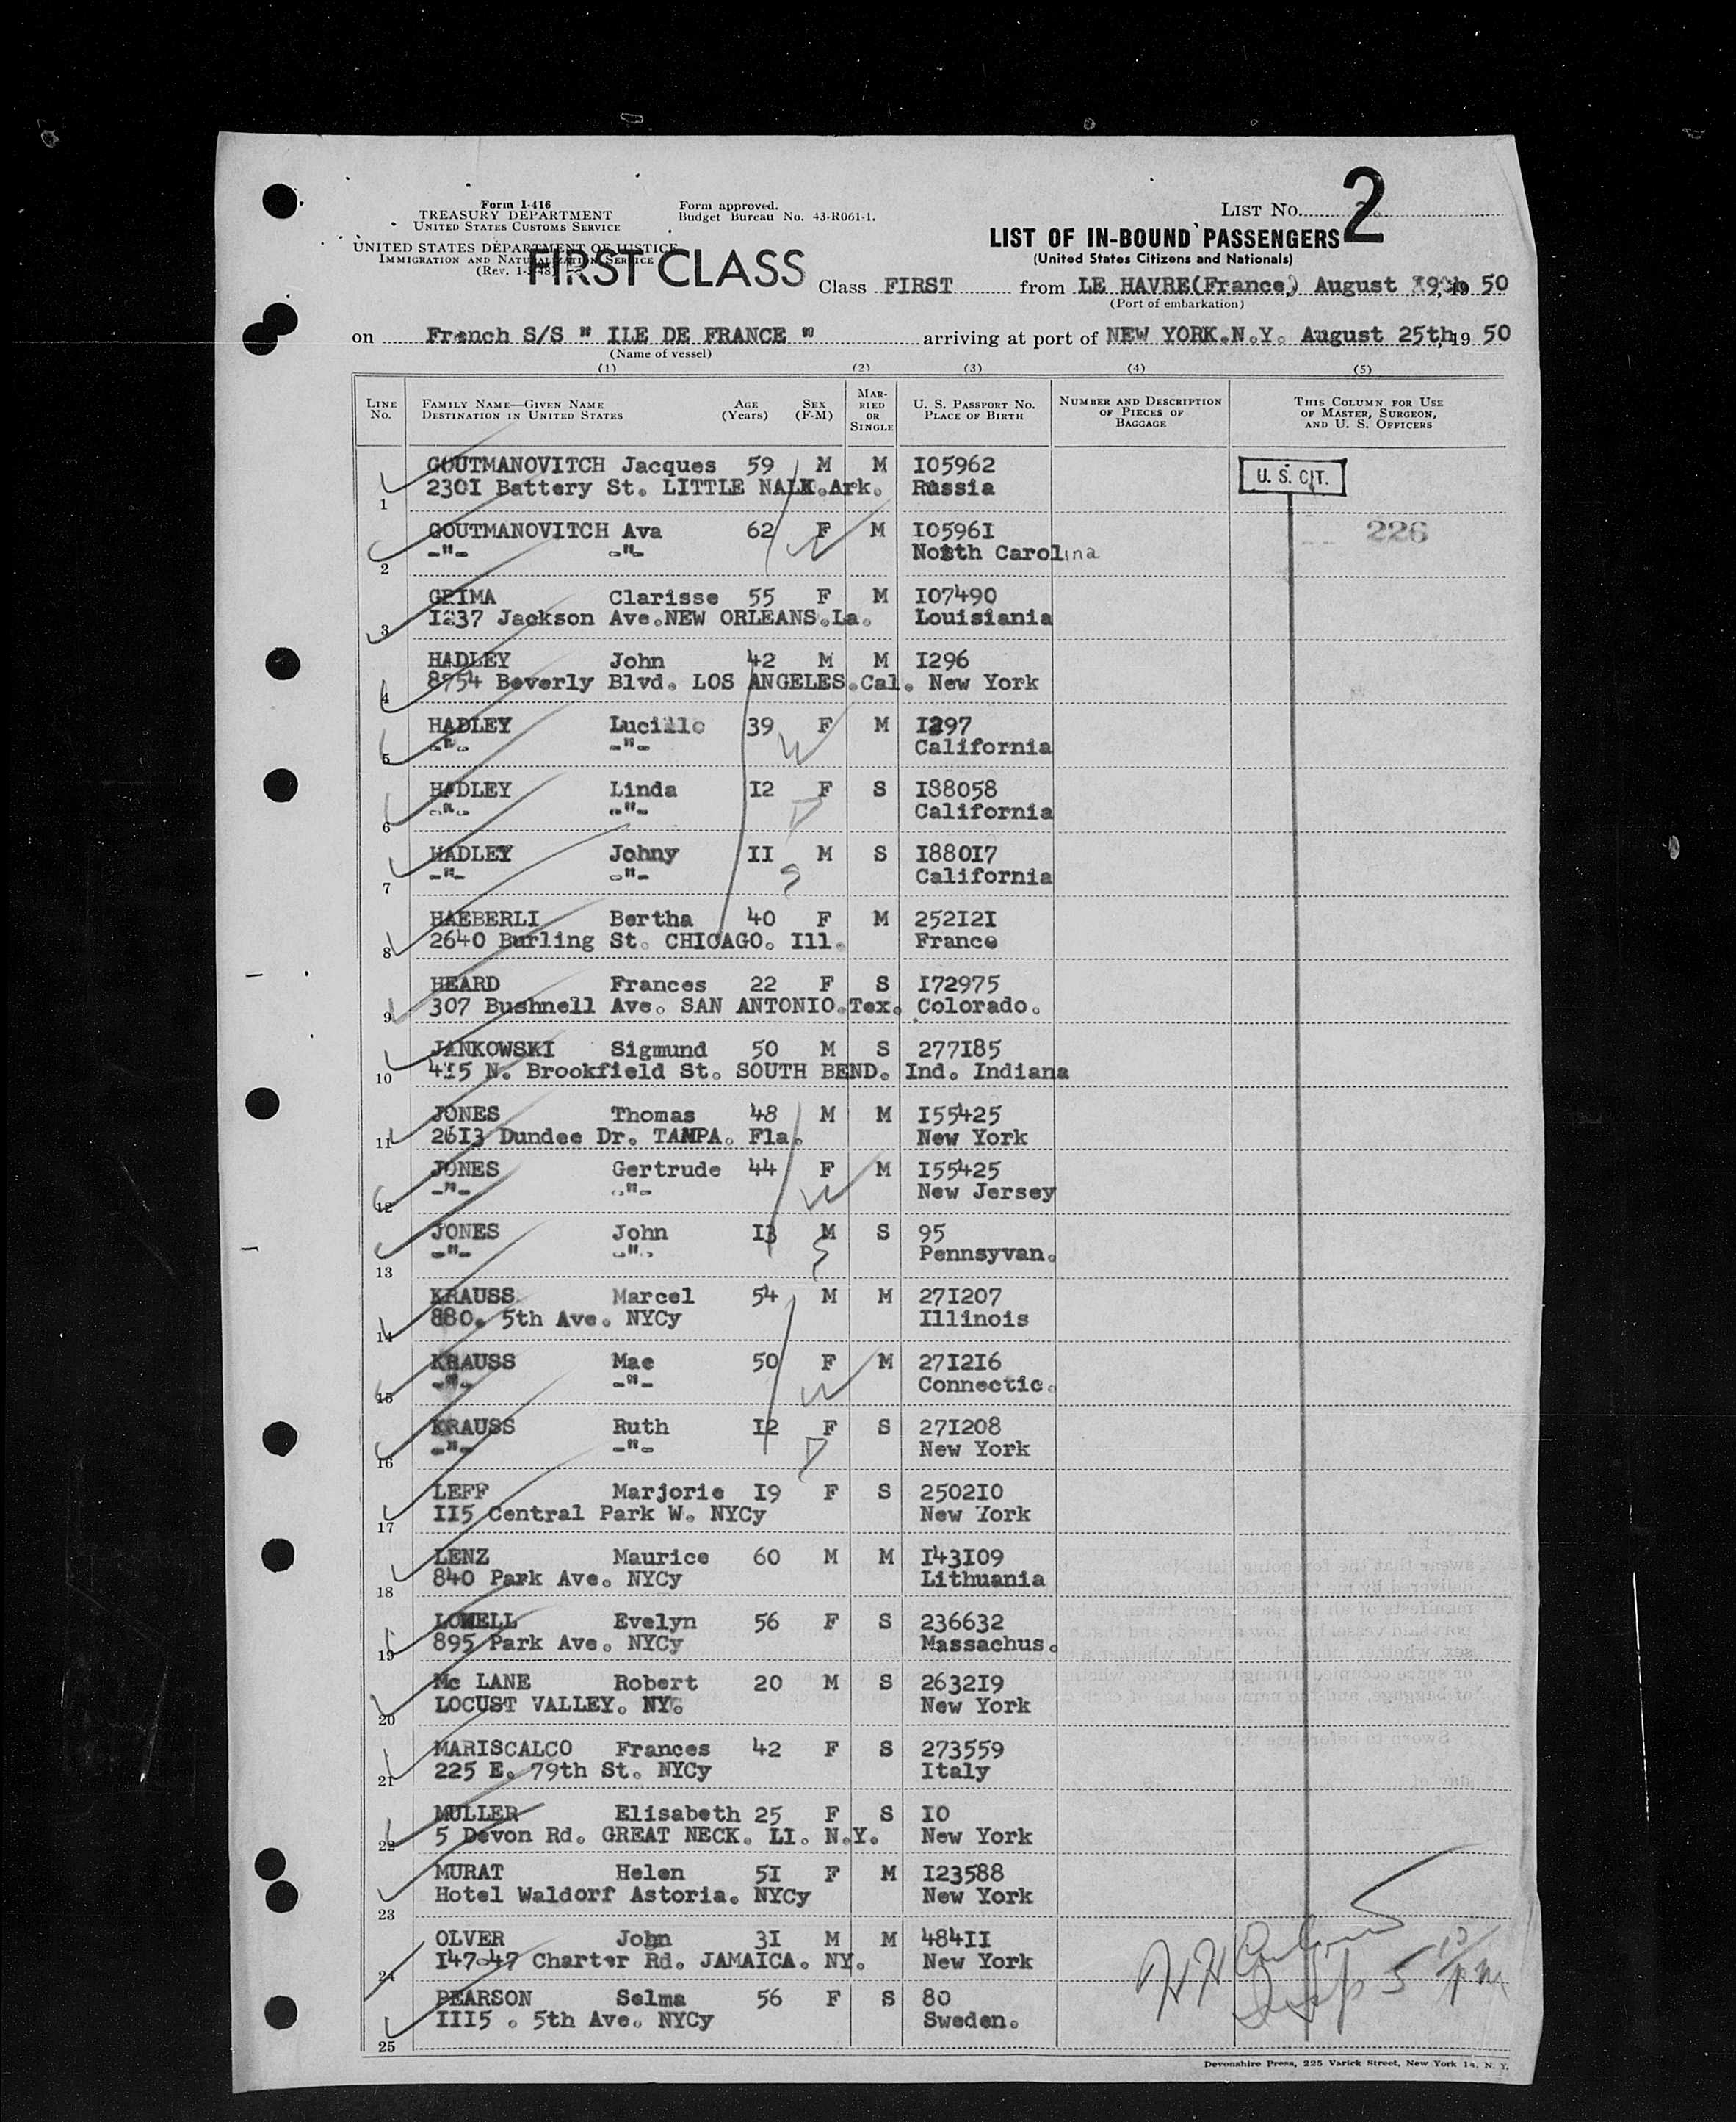 Form I-416
TREASURY DEPARTMENT
UNITED STATES CUSTOMS SERVICE
UNITED STATES DEPARTMENT OF JUSTICE
IMMIGRATION AND NATURALIZATION SERVICE
Form approved.
Budget Bureau No. 43-R061-1.
FIRST CLASS
LIST NO. 2
LIST OF IN-BOUND PASSENGERS
(United States Citizens and Nationals)
Class FIRST from LE HAVRE(France,) August 19th, 19 50
(Port of embarkation)
on French S/S " ILE DE FRANCE " arriving at port of NEW YORK.N.Y. August 25th, 19 50
(Name of vessel)
(1) (2) (3) (4) (5)
LINE NO. FAMILY NAME—GIVEN NAME DESTINATION IN UNITED STATES AGE (Years) SEX (F-M) MARRIED OR SINGLE U. S. PASSPORT NO. PLACE OF BIRTH NUMBER AND DESCRIPTION OF PIECES OF BAGGAGE THIS COLUMN FOR USE OF MASTER, SURGEON, AND U. S. OFFICERS
GOUTMANOVITCH Jacques 59 M M I05962 U. S. CIT.
1 230I Battery St. LITTLE NALK.Ark. Russia
GOUTMANOVITCH Ava 62 F M I0596I 226
2 -"- -"- North Carolina
GRIMA Clarisse 55 F M I07490
3 I237 Jackson Ave.NEW ORLEANS.La. Louisiania
HADLEY John 42 M M I296
4 8754 Beverly Blvd. LOS ANGELES.Cal. New York
HADLEY Lucille 39 F M I297
5 -"- -"- California
HADLEY Linda I2 F S I88058
6 -"- -"- California
HADLEY Johny II M S I880I7
7 -"- -"- California
HAEBERLI Bertha 40 F M 252I2I
8 2640 Burling St. CHICAGO. Ill. France
HEARD Frances 22 F S I72975
9 307 Bushnell Ave. SAN ANTONIO.Tex. Colorado.
JANKOWSKI Sigmund 50 M S 277I85
10 4I5 N. Brookfield St. SOUTH BEND. Ind. Indiana
JONES Thomas 48 M M I55425
11 26I3 Dundee Dr. TAMPA. Fla. New York
JONES Gertrude 44 F M I55425
12 -"- -"- New Jersey
JONES John I3 M S 95
13 -"- -"- Pennsyvan.
KRAUSS Marcel 54 M M 27I207
14 880. 5th Ave. NYCy Illinois
KRAUSS Mae 50 F M 27I2I6
15 -"- -"- Connectic.
KRAUSS Ruth I2 F S 27I208
16 -"- -"- New York
LEFF Marjorie I9 F S 2502I0
17 II5 Central Park W. NYCy New York
LENZ Maurice 60 M M I43I09
18 840 Park Ave. NYCy Lithuania
LOWELL Evelyn 56 F S 236632
19 895 Park Ave. NYCy Massachus.
Mc LANE Robert 20 M S 2632I9
20 LOCUST VALLEY. NY. New York
MARISCALCO Frances 42 F S 273559
21 225 E. 79th St. NYCy Italy
MULLER Elisabeth 25 F S I0
22 5 Devon Rd. GREAT NECK. LI. N.Y. New York
MURAT Helen 5I F M I23588
23 Hotel Waldorf Astoria. NYCy New York
OLVER John 3I M M 484II
24 I47-47 Charter Rd. JAMAICA. NY. New York
PEARSON Selma 56 F S 80
25 III5 . 5th Ave. NYCy Sweden.
Devonshire Press, 225 Varick Street, New York 14, N. Y.